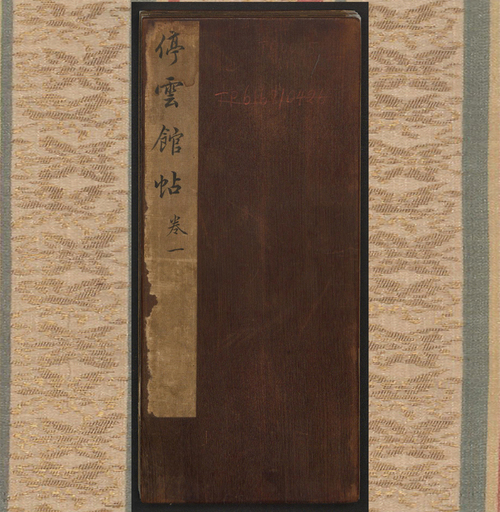 停雲館帖 卷一